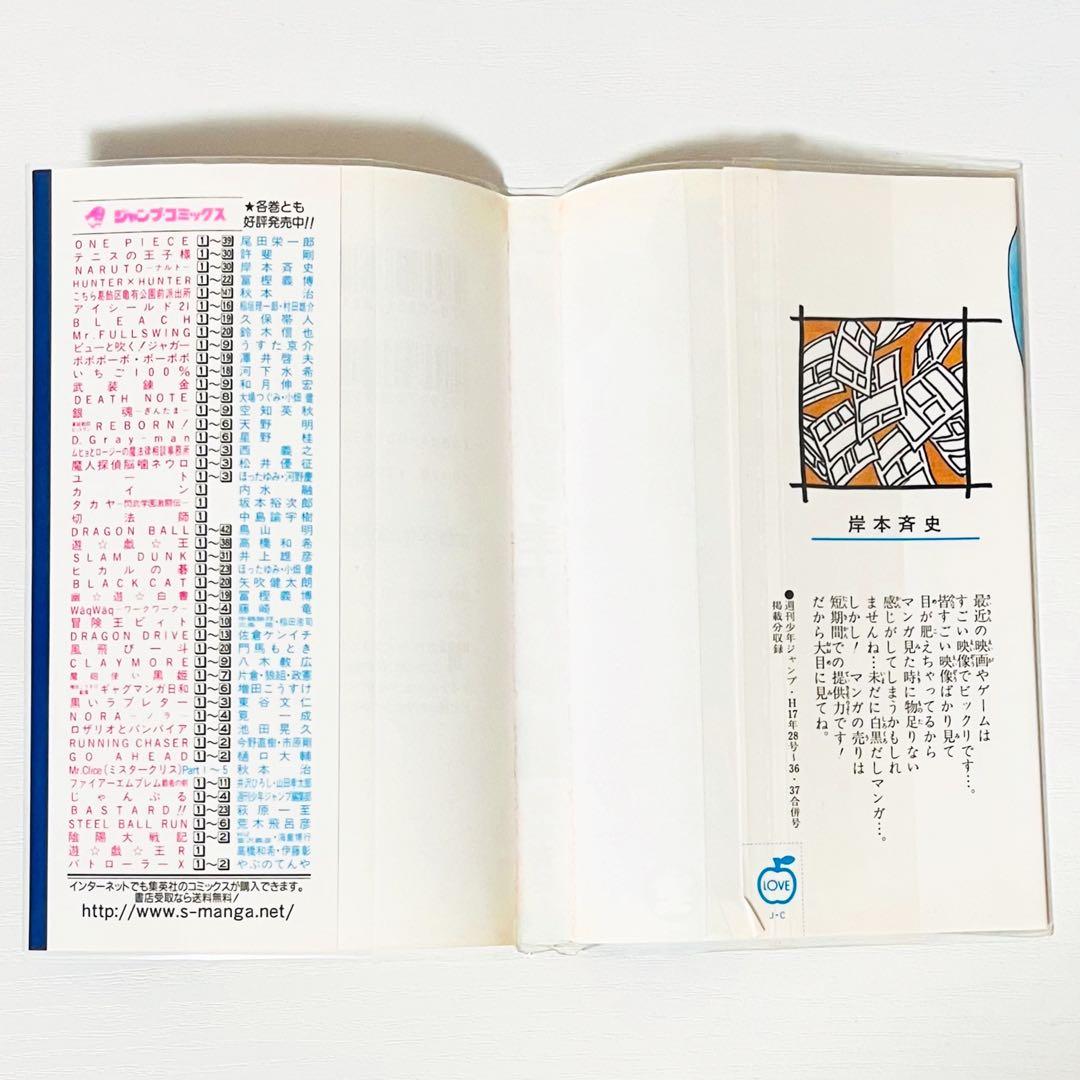 ジャンプコミックス
★各巻とも
好評発売中!!
ONE PIECE 1〜39 尾田栄一郎
テニスの王子様 1〜30 許斐 剛
NARUTO―ナルト― 1〜30 岸本斉史
HUNTER×HUNTER 1〜22 冨樫義博
こちら葛飾区亀有公園前派出所 1〜147 秋本 治
アイシールド21 1〜16 稲垣理一郎・村田雄介
BLEACH 1〜19 久保帯人
Mr.FULLSWING 1〜20 鈴木信也
ピューと吹く!ジャガー 1〜9 うすた京介
ボボボーボ・ボーボボ 1〜19 澤井啓夫
いちご100% 1〜18 河下水希
武装錬金 1〜9 和月伸宏
DEATH NOTE 1〜8 大場つぐみ・小畑 健
銀魂―ぎんたま― 1〜9 空知英秋
REBORN! 1〜6 天野 明
D.Gray-man 1〜6 星野 桂
ムヒョとロージーの魔法律相談事務所 1〜3 西 義之
魔人探偵脳噛ネウロ 1〜3 松井優征
ユート 1〜3 ほったゆみ・河野慶
カイン 1 内水 融
タカヤ―閃武学園激闘伝― 1 坂本裕次郎
切法師 1 中島諭宇樹
DRAGON BALL 1〜42 鳥山 明
遊☆戯☆王 1〜38 高橋和希
SLAM DUNK 1〜31 井上雄彦
ヒカルの碁 1〜23 ほったゆみ・小畑 健
BLACK CAT 1〜20 矢吹健太朗
幽☆遊☆白書 1〜19 冨樫義博
WāqWāq―ワークワーク― 1〜4 藤崎 竜
冒険王ビィト 1〜10 三条 陸・稲田浩司
DRAGON DRIVE 1〜13 佐倉ケンイチ
風飛び一斗 1〜20 門馬もとき
CLAYMORE 1〜9 八木教広
魔砲使い黒姫 1〜7 片倉・狼組・政憲
ギャグマンガ日和 1〜6 増田こうすけ
黒いラブレター 1〜3 東谷文仁
NORA―ノラ― 1〜4 筧 一成
ロザリオとバンパイア 1〜4 池田晃久
RUNNING CHASER 1〜2 今野直樹・市原剛
GO AHEAD 1〜2 樋口大輔
Mr.Clice(ミスタークリス)Part 1〜5 秋本 治
ファイアーエムブレム覇者の剣 1〜11 井沢ひろし・山田孝太郎
じゃんぷる 1〜4 週刊少年ジャンプ編集部
BASTARD!! 1〜23 萩原一至
STEEL BALL RUN 1〜6 荒木飛呂彦
陰陽大戦記 1〜2
遊☆戯☆王R 1 高橋和希・伊藤彰
パトローラーX 1〜2 やぶのてんや
インターネットでも集英社のコミックスが購入できます。
書店受取なら送料無料!
http://www.s-manga.net/
岸本斉史
最近の映画やゲームは
すごい映像でビックリです…。
皆すごい映像ばかり見て
目が肥えちゃってるから
マンガ見た時に物足りない
感じがしてしまうかもしれ
ませんね…未だに白黒だしマンガ…。
しかし! マンガの売りは
短期間での提供力です!
だから大目に見てね。
●週刊少年ジャンプ・H17年28号〜36・37合併号
掲載分収録
LOVE
J・C